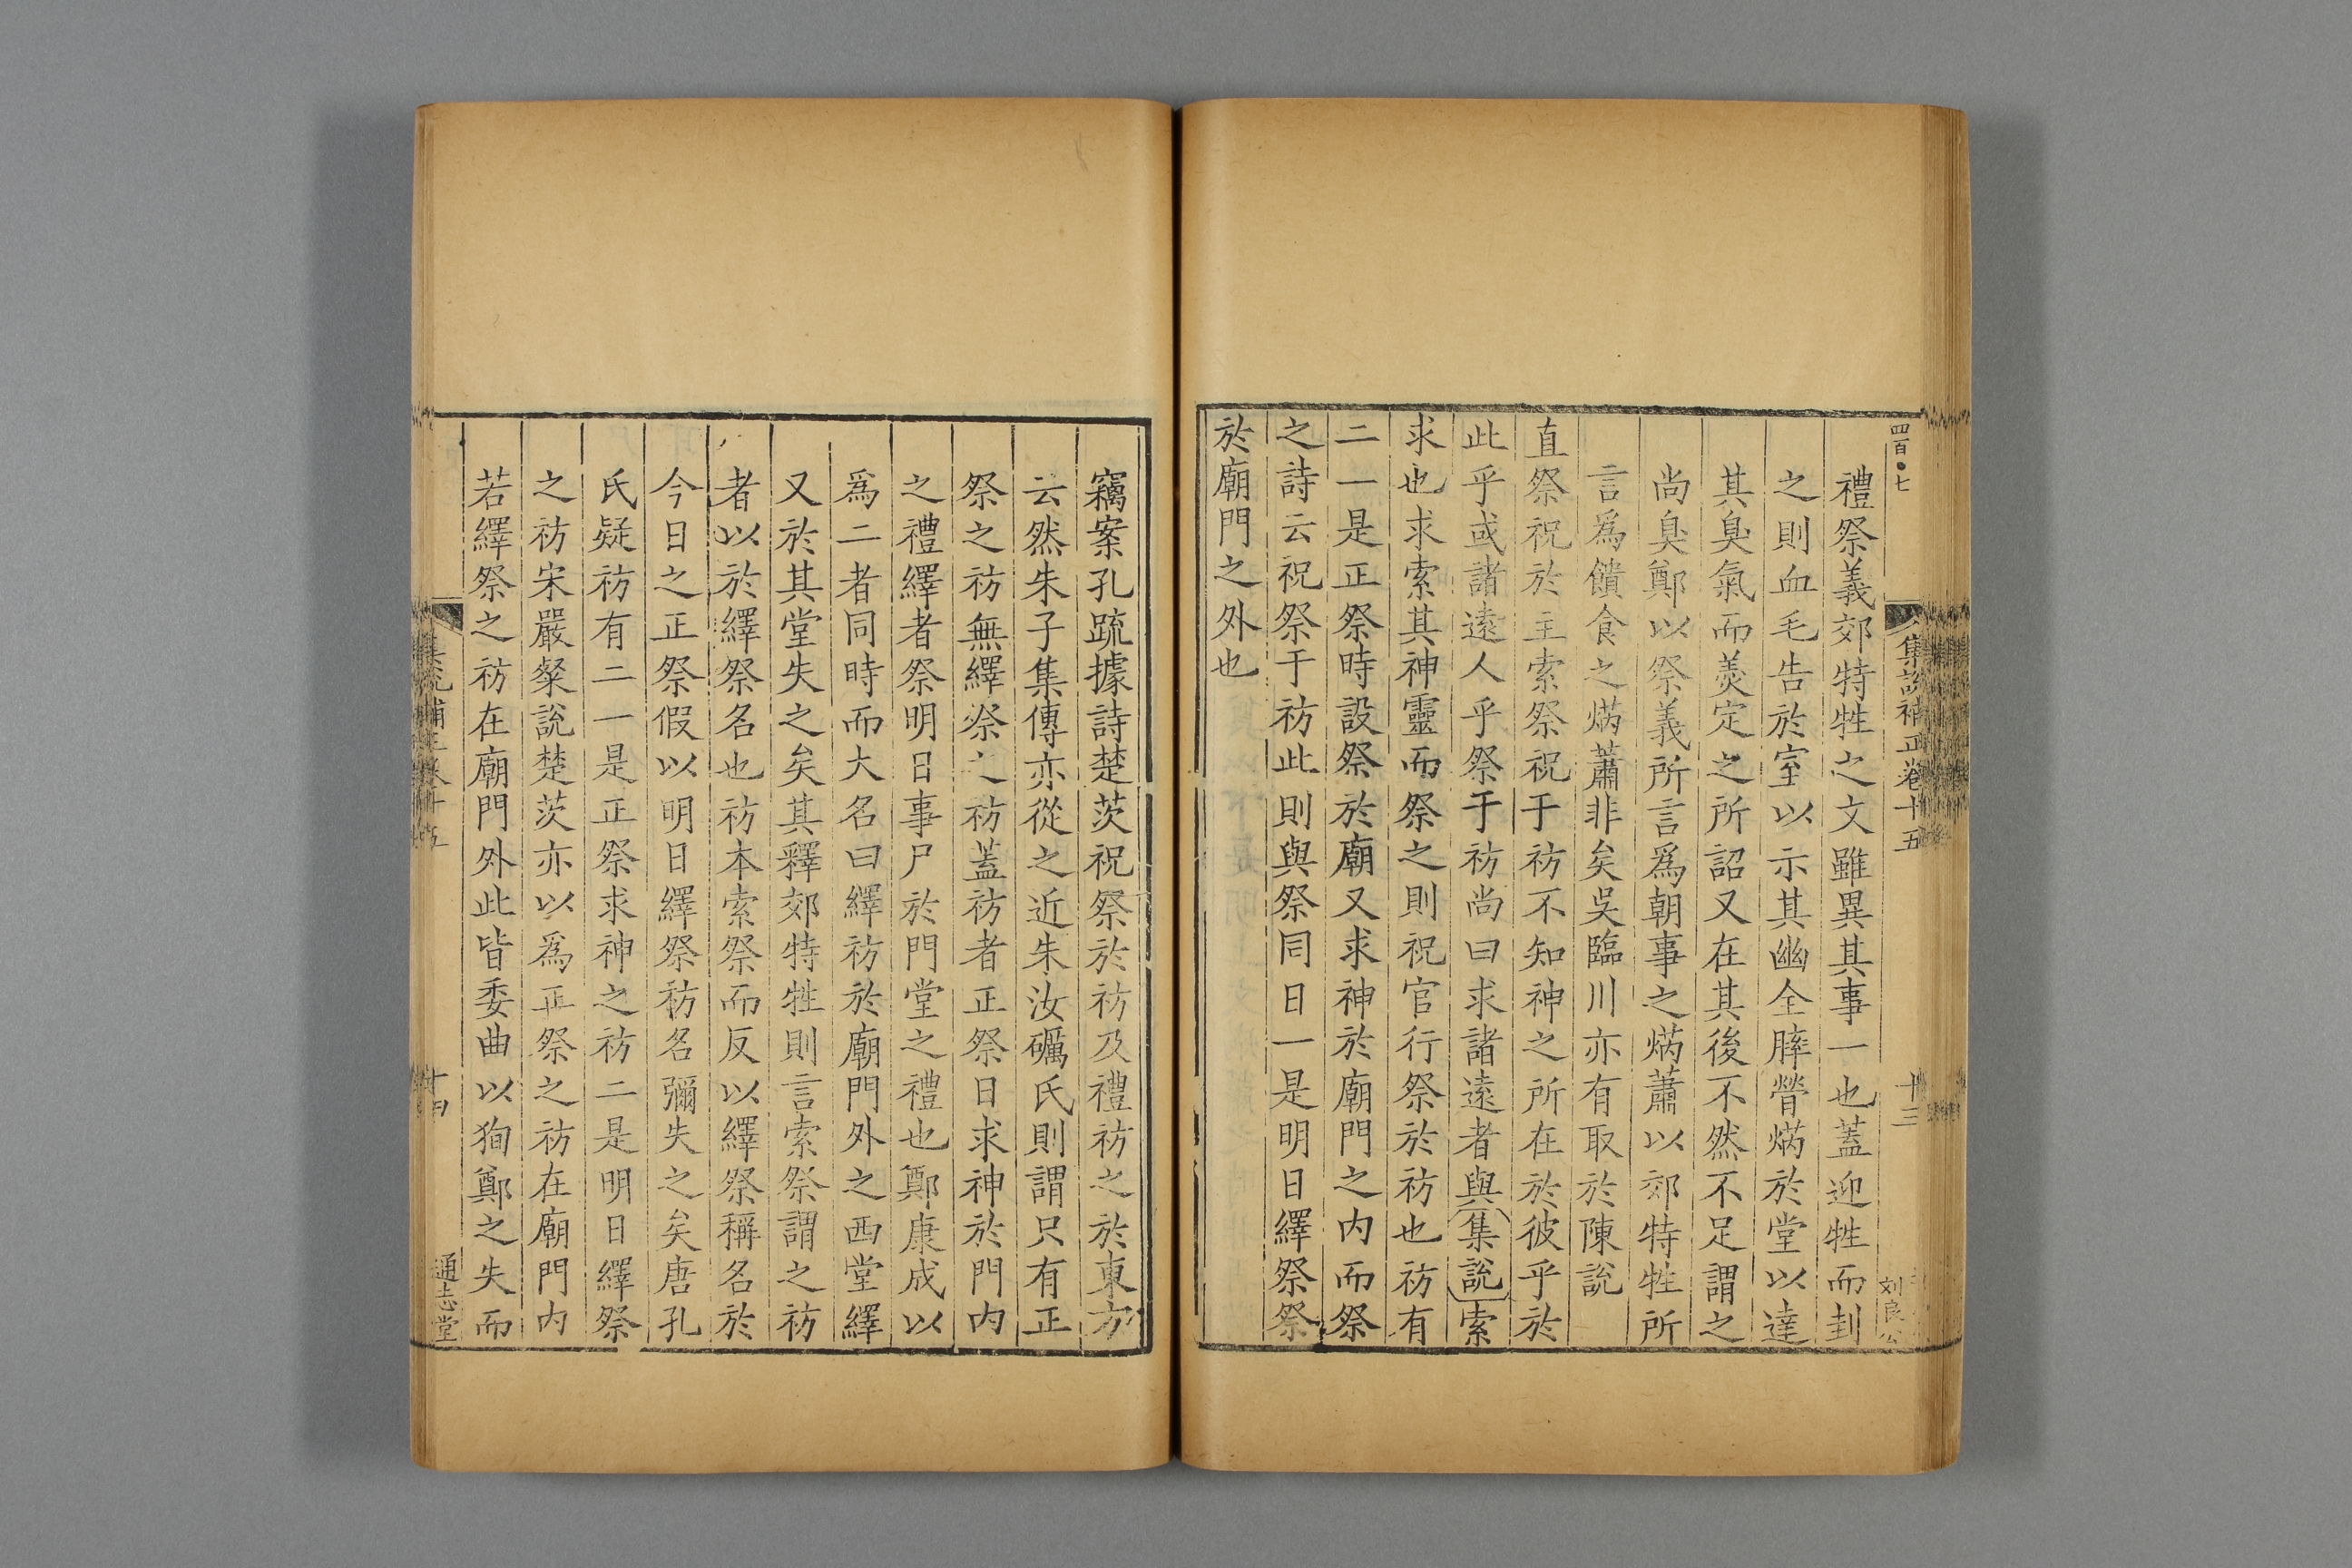 四百七
集說補正卷十五
十三
刘良公
禮祭義郊特牲之文雖異其事一也蓋迎牲而刲
之則血毛告於室以示其幽全膟膋焫於堂以達
其臭氣而羮定之所詔又在其後不然不足謂之
尚臭鄭以祭義所言爲朝事之焫蕭以郊特牲所
言爲饋食之焫蕭非矣吳臨川亦有取於陳說
直祭祝於主索祭祝于祊不知神之所在於彼乎於
此乎或諸遠人乎祭于祊尚曰求諸遠者與集說索
求也求索其神靈而祭之則祝官行祭於祊也祊有
二一是正祭時設祭於廟又求神於廟門之内而祭
之詩云祝祭于祊此則與祭同日一是明日繹祭祭
於廟門之外也
竊案孔疏據詩楚茨祝祭於祊及禮祊之於東方
云然朱子集傳亦從之近朱汝礪氏則謂只有正
祭之祊無繹祭之祊蓋祊者正祭日求神於門内
之禮繹者祭明日事尸於門堂之禮也鄭康成以
爲二者同時而大名曰繹祊於廟門外之西堂繹
又於其堂失之矣其釋郊特牲則言索祭謂之祊
者以於繹祭名也祊本索祭而反以繹祭稱名於
今日之正祭假以明日繹祭祊名彌失之矣唐孔
氏疑祊有二一是正祭求神之祊二是明日繹祭
之祊宋嚴粲說楚茨亦以爲正祭之祊在廟門内
若繹祭之祊在廟門外此皆委曲以狥鄭之失而
集說補正卷十五
十四
通志堂